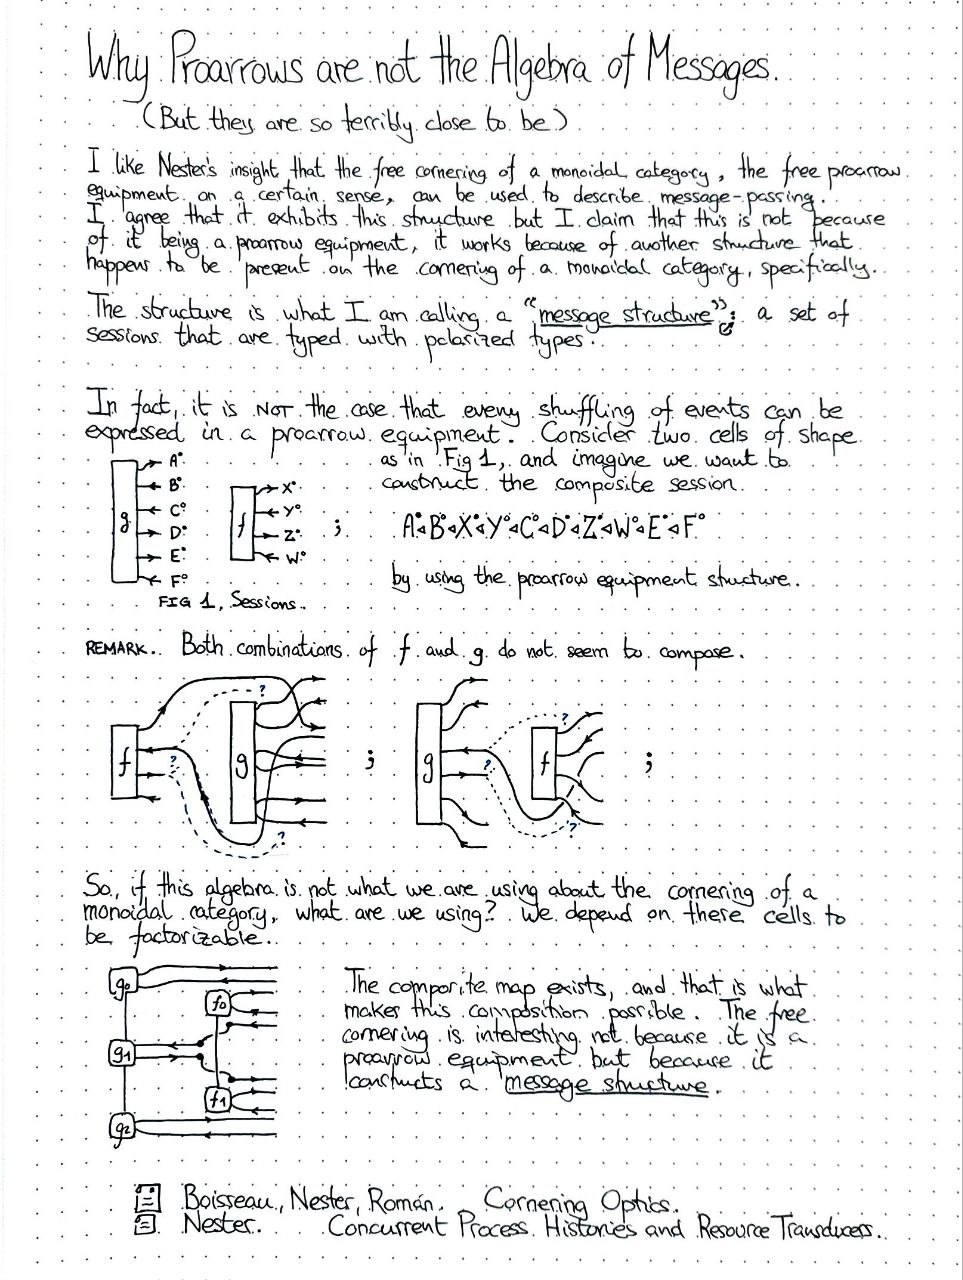 Why Proarrows are not the Algebra of Messages.
(But they are so terribly close to be)
I like Nester's insight that the free cornering of a monoidal category, the free proarrow
equipment on a certain sense, can be used to describe message-passing.
I agree that it exhibits this structure but I claim that this is not because
of it being a proarrow equipment, it works because of another structure that
happens to be present on the cornering of a monoidal category, specifically.
The structure is what I am calling a "message structure": a set of
sessions that are typed with polarized types.
In fact, it is NOT the case that every shuffling of events can be
expressed in a proarrow equipment. Consider two cells of shape
as in Fig 1, and imagine we want to
construct the composite session.
g
A•
B•
C°
D•
E•
F°
f
X•
Y°
Z•
W°
;
A•◃B•◃X•◃Y°◃C°◃D•◃Z•◃W°◃E•◃F°
by using the proarrow equipment structure.
FIG 1, Sessions.
REMARK. Both combinations of f and g do not seem to compose.
f ? g ? ? ; g ? f ? ? ;
So, if this algebra is not what we are using about the cornering of a
monoidal category, what are we using? We depend on there cells to
be factorizable.
g0
f0
g1
f1
g2
The composite map exists, and that is what
makes this composition possible. The free
cornering is interesting not because it is a
proarrow equipment but because it
constructs a message structure.
Boisseau, Nester, Román. Cornering Optics.
Nester. Concurrent Process Histories and Resource Transducers.